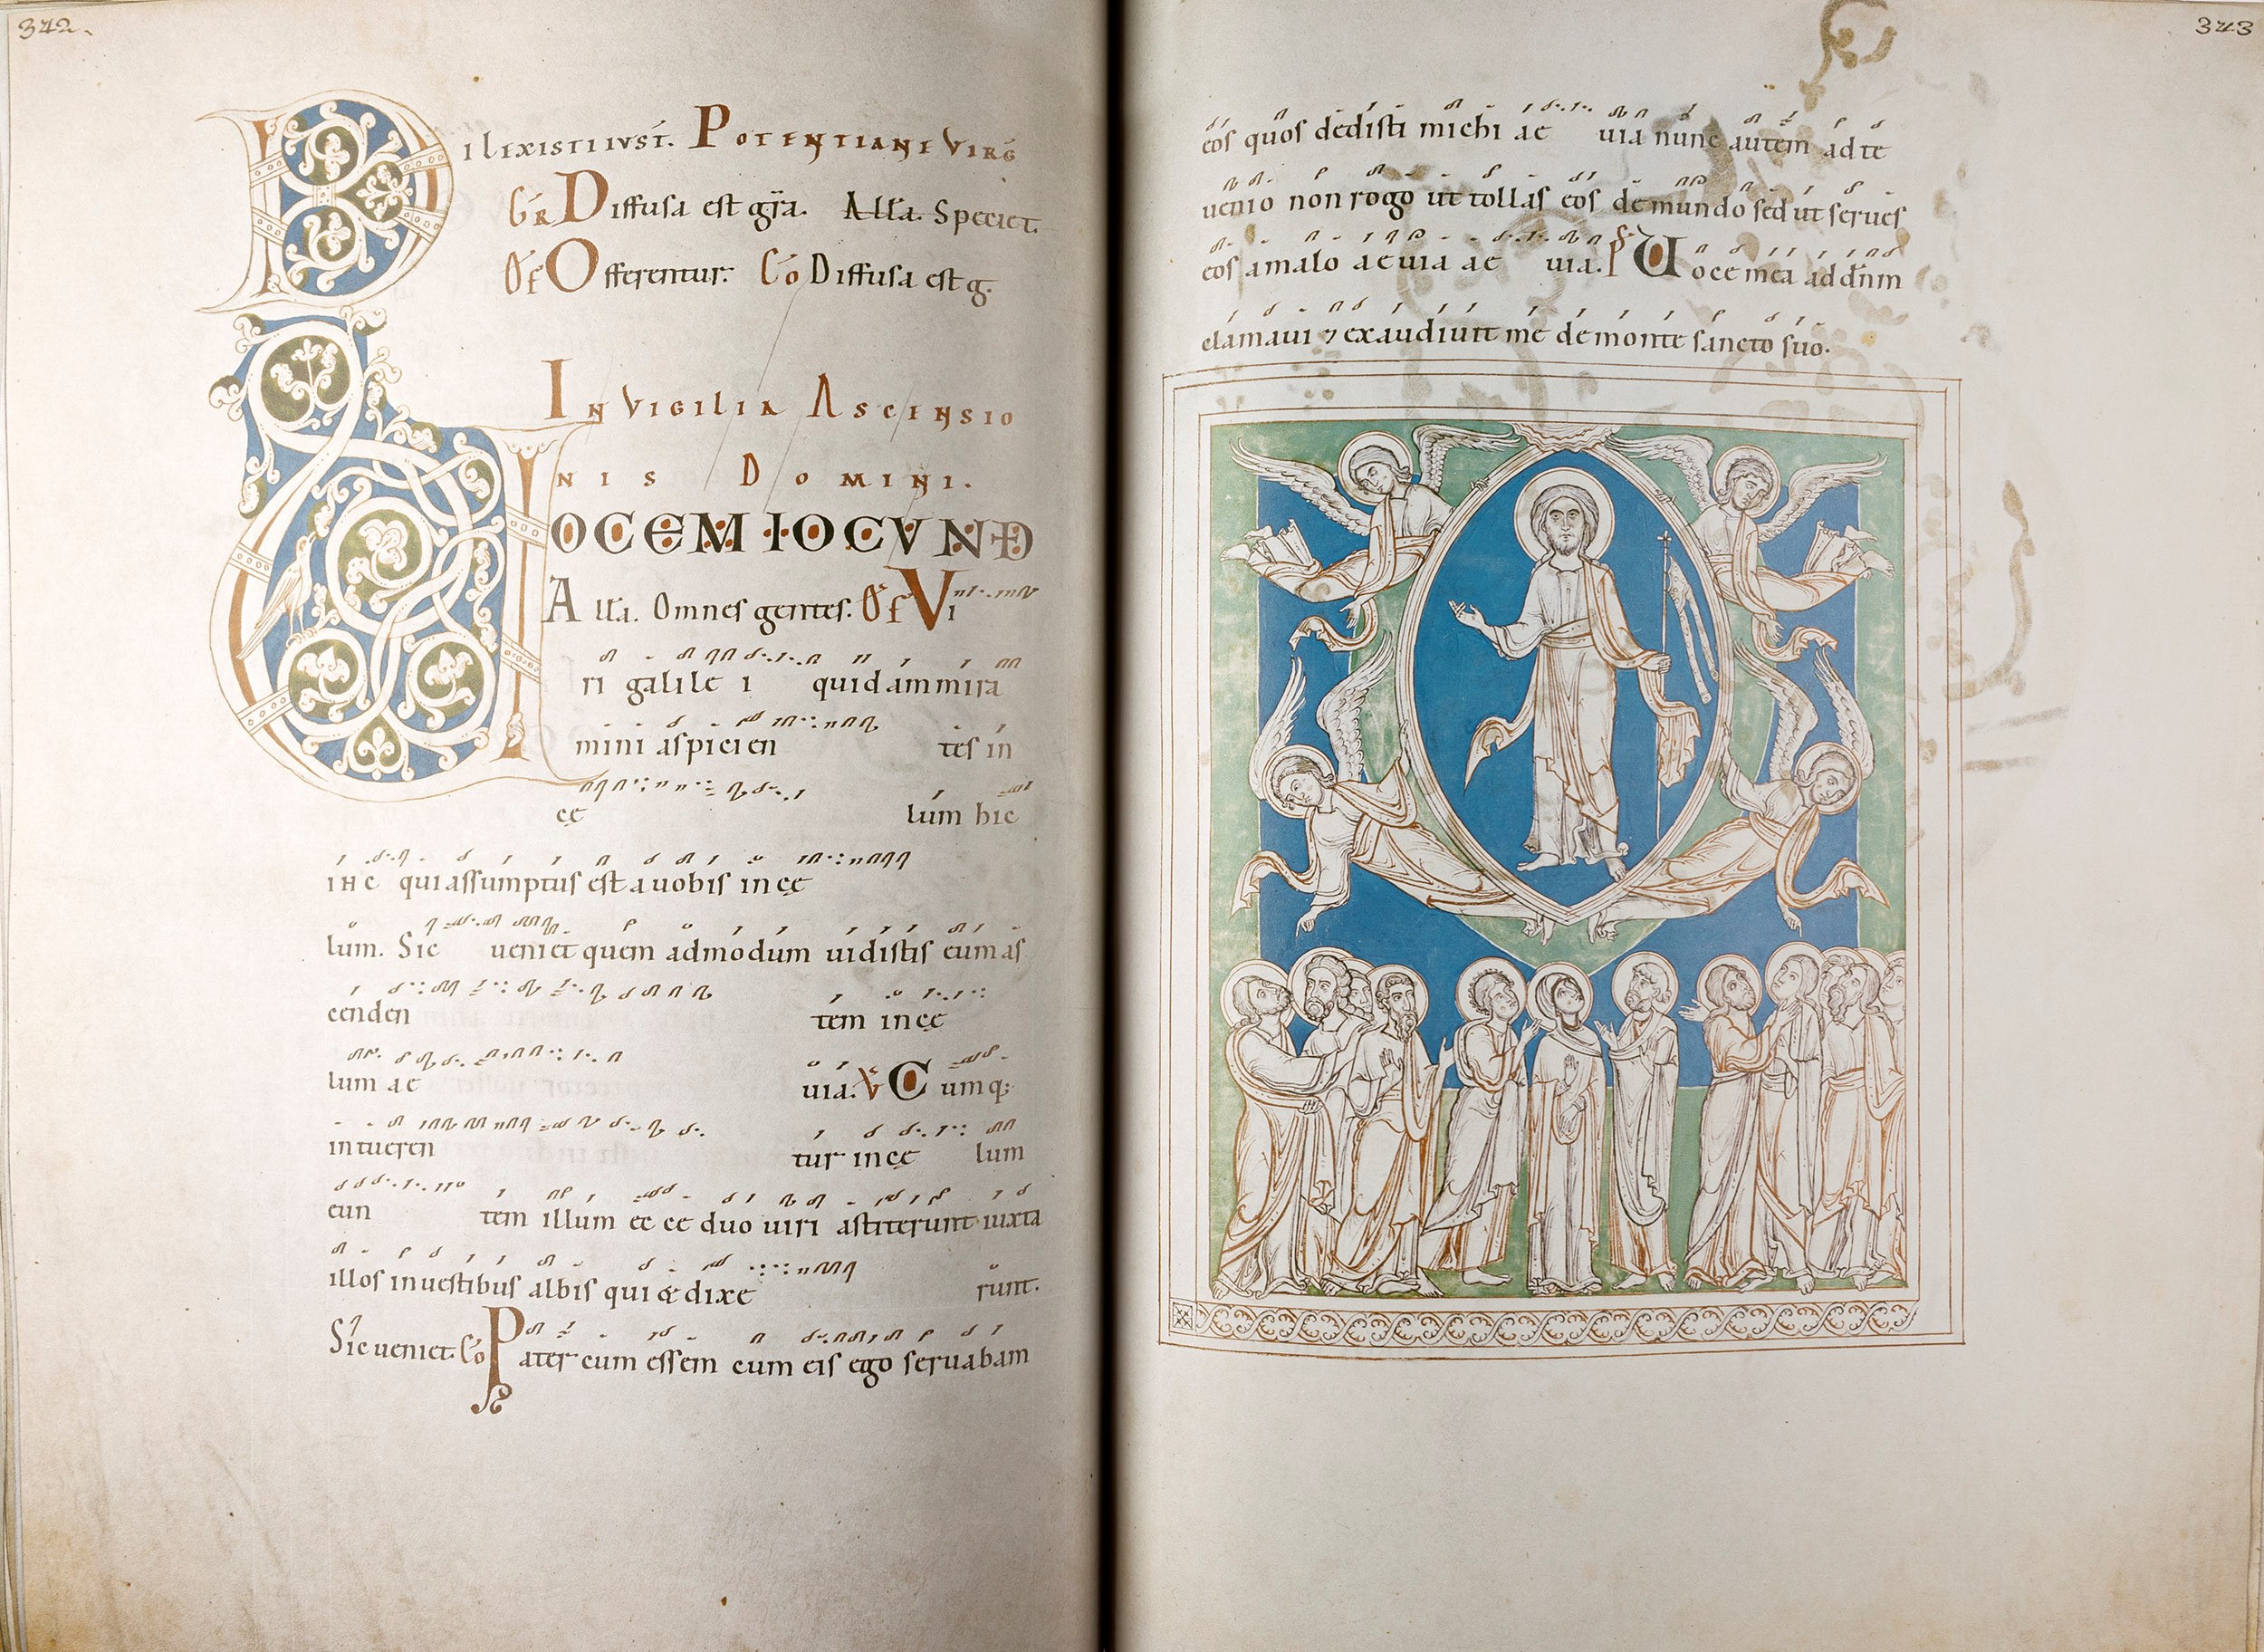 342.
DILEXISTI IVST. POTENTIANE VIRG
GR Diffusa est gra. Alla. Speciet.
OF Offerentur. CO Diffusa est g.
IN VIGILIA ASCENSIO
NIS DOMINI.
VOCEM IOCVND
Alla. Omnes gentes. OF Vi
ri galile i quid ammira
mini aspicien tes in
cę lum hic
IHC qui assumptus est a uobis in cę
lum. Sic ueniet quem admodum uidistis eum as
cenden tem in cę
lum ae uia. V Cumq;
intueren tur in cę lum
eun tem illum ec ce duo uiri astiterunt iuxta
illos in uestibus albis qui & dixe runt.
Sic ueniet. CO Pater cum essem cum eis ego seruabam
343
eos quos dedisti michi ae uia nunc autem ad te
uenio non rogo ut tollas eos de mundo sed ut serues
eos a malo aeuia ae uia. Ps Uoce mea ad dnm
clamaui ⁊ exaudiuit me de monte sancto suo.